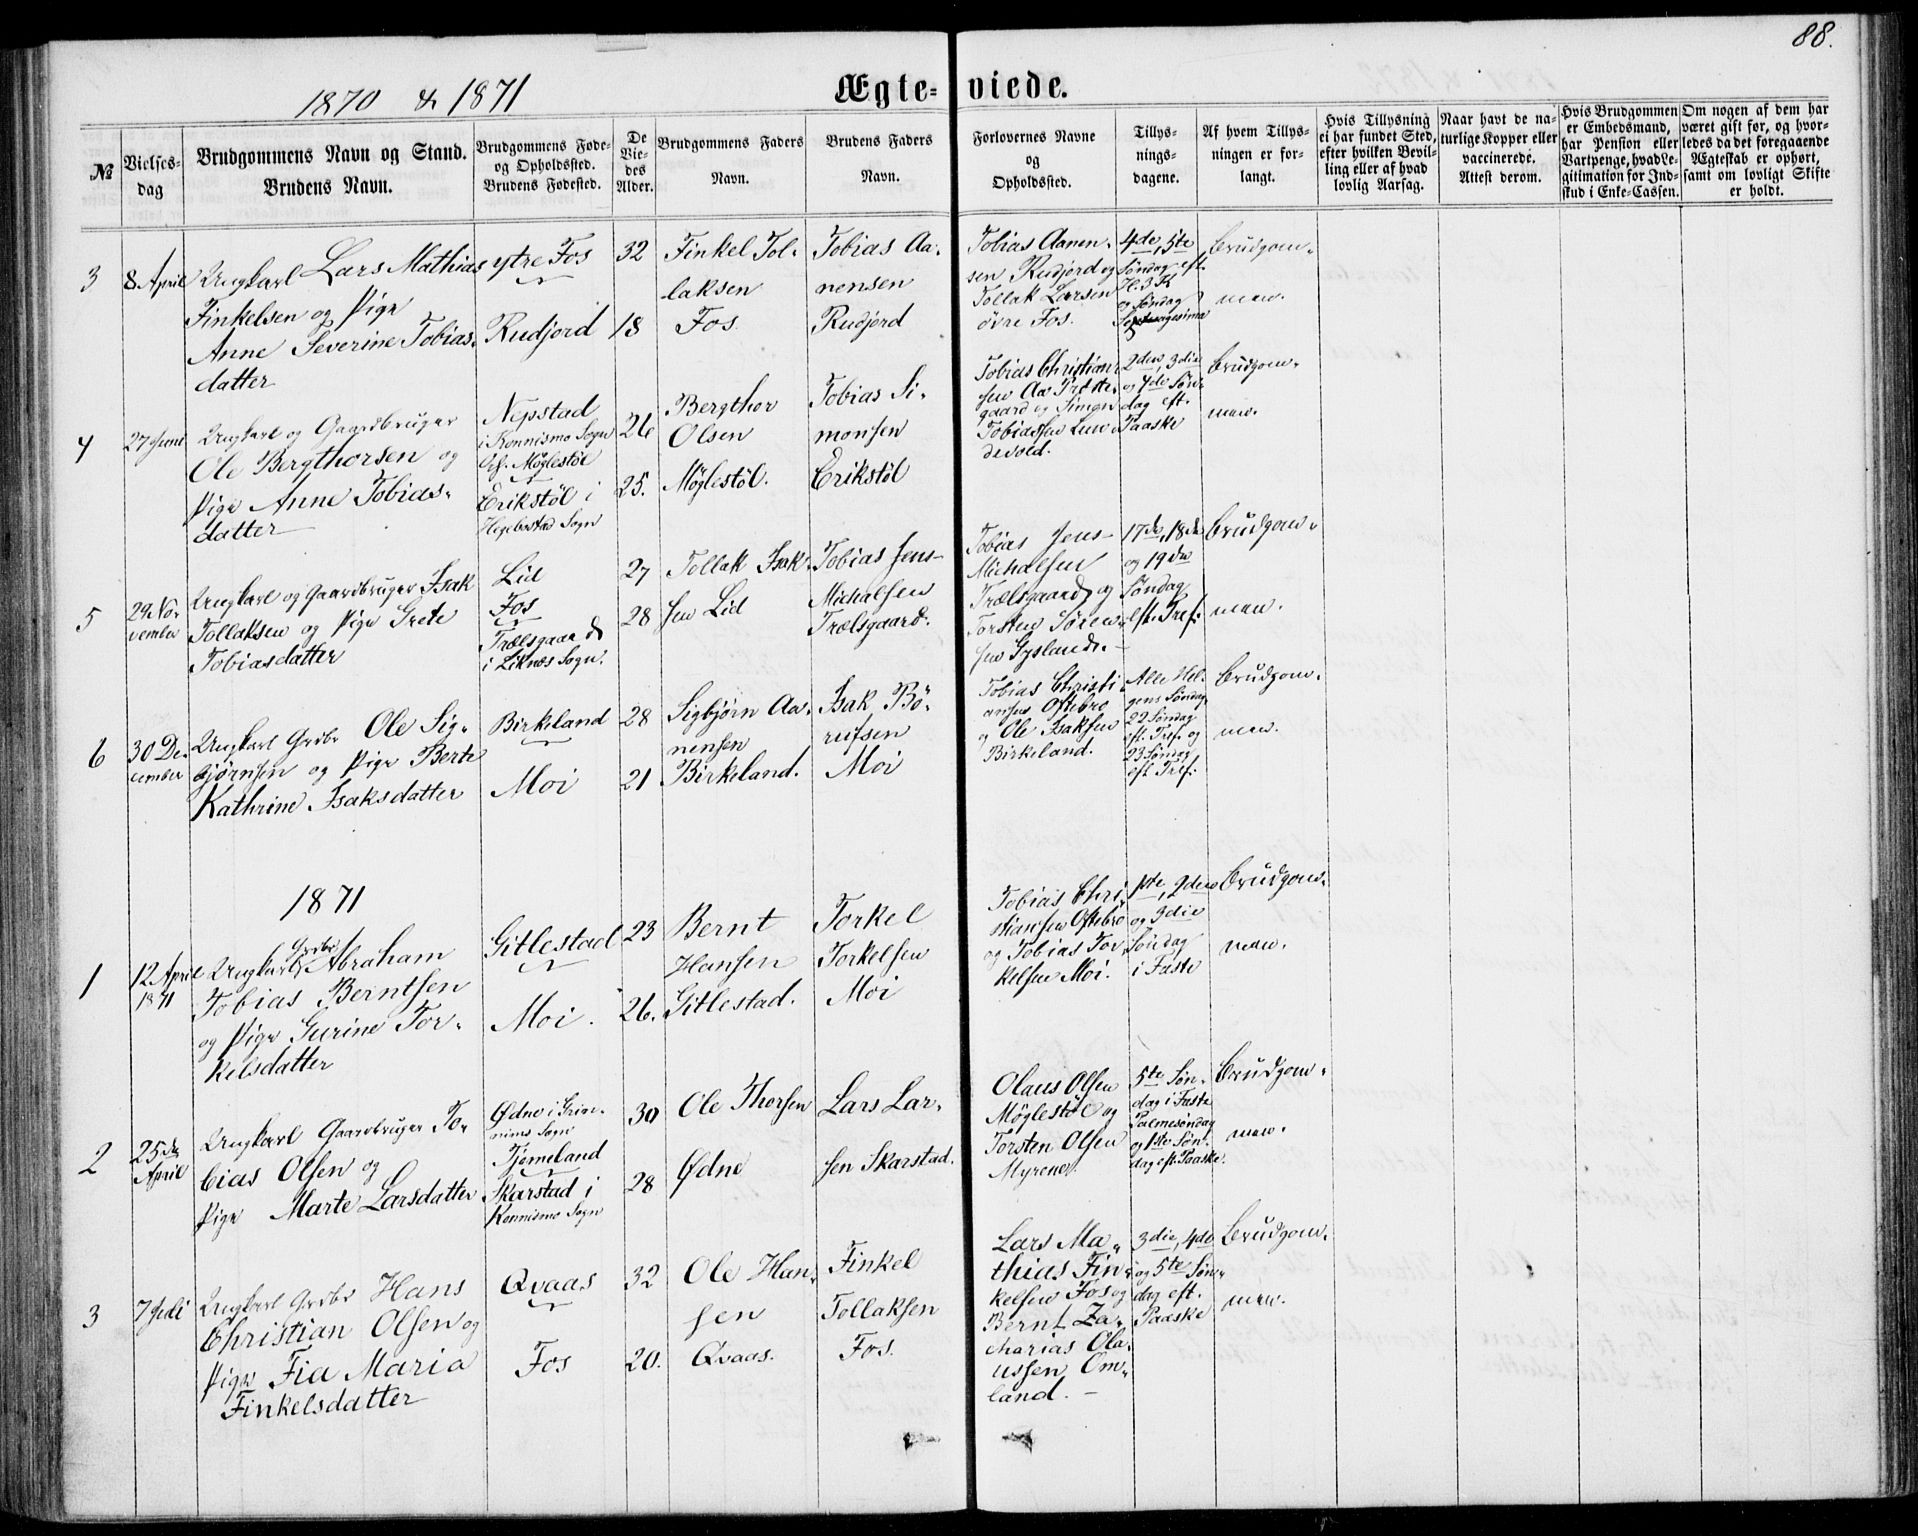 88.
1870 & 1871
Ægte- viede.
№
Vielses-
dag
Brudgommens Navn og Stand.
Brudens Navn.
Brudgommens Føde-
og Opholdssted.
Brudens Fødested.
De
Vie-
des
Alder.
Brudgommens Faders
Navn.
Brudens Faders
Navn.
Forlovernes Navne
og
Opholdssted.
Tillys-
nings-
dagene.
Af hvem Tillys-
ningen er for-
langt.
Hvis Tillysning
ei har fundet Sted,
efter hvilken Bevil-
ling eller af hvad
lovlig Aarsag.
Naar havt de na-
turlige Kopper eller
vaccinerede.
Attest derom.
Hvis Brudgommen
er Embedsmand,
har Pension eller
Vartpenge, hvad Le-
gitimation for Ind-
skud i Enke-Cassen.
Om nogen af dem har
været gift før, og hvor-
ledes da det foregaaende
Ægteskab er ophørt,
samt om lovligt Skifte
er holdt.
3
8 April
Ungkarl Lars Mathias
Finkelsen og Pige
Anne Severine Tobias-
datter
ytre Fos
Rudjord
32
18
Finkel Tol-
laksen
Fos
Tobias Aa-
nensen
Rudjord
Tobias Aanen-
sen Rudjord og
Tollak Larsen
øvre Fos.
4de, 5te
Søndag eft.
H. 3 K
og Søndag
Brudgom-
men.
4
27 Juni
Ungkarl og Gaardbruger
Ole Bergthorsen og
Pige Anne Tobias-
datter
Nepstad
i Konnismo Sogn
Møglestøl
Erikstøl i
Hegebostad Sogn
26
25.
Bergthor
Olsen
Møglestøl.
Tobias Si-
monsen
Erikstøl
Tobias Christian-
sen Aa Præste-
gaard og Simon
Tobiassen Lun-
devold.
2den, 3die
og 4de Søn-
dag eft.
Paaske
Brudgom-
men.
5
29 No-
vember
Ungkarl og Gaardbruger Isak
Tollaksen og Pige Grete
Tobiasdatter
Lid
Fos
Trælsgaard
i Liknæs Sogn.
27
28
Tollak Isak-
sen Lid
Tobias Jens-
Michalsen
Trælsgaard.
Tobias Jens-
Michalsen
Trælsgaard og
Torsten Søren-
sen Gysland. -
17de, 18de
og 19de
Søndag
eft. Tref.
Brudgom-
men.
6
30 De-
cember
Ungkarl Grdbr Ole Sig-
bjørnsen og Pige Berte
Kathrine Isaksdatter
Birkeland
Moi
28
21
Sigbjørn Aa-
nensen
Birkeland.
Isak Bö-
rufsen
Moi
Tobias Christi-
ansen Oftebro
og Ole Isaksen
Birkeland.
Alle Hel-
gens Søndag,
22 Søndag
eft. Tref. og
23 Søndag
eft Tref.
Brudgom-
men.
1871
1
12 April
1871
Grdbr
Ungkarl Abraham
Tobias Berntsen
og Pige Gurine Tor-
kelsdatter
Gitlestad
Moi.
23
26.
Bernt
Hansen
Gitlestad.
Torkel
Torkelsen
Moi
Tobias Chri-
stiansen Oftebro
og Tobias Tor-
kelsen Moi.
1ste, 2den
og 3die
Søndag
i Faste
Brudgom-
men.
2
25de
April
Ungkarl Gaardbruger To-
bias Olsen og
Pige Marte Larsdatter
Ødne i Grin-
nims Sogn
Tjomeland
Skarstad i
Konnismo Sogn
30
28
Ole Thorsen
Ødne
Lars Lar-
sen Skarstad.
Olaus Olsen
Møglestøl og
Torsten Olsen
Myrene.
5te Søn-
dag i Faste
Palmesøndag
og 1ste Søn-
dag eft. Paaske.
Brudgom-
men.
3
7 Juli
Ungkarl Grdbr Hans
Christian Olsen og
Pige Fia Maria
Finkelsdatter
Qvaas
Fos
32
20.
Ole Han-
sen
Qvaas.
Finkel
Tollaksen
Fos.
Lars Ma-
thias Fin-
kelsen Fos og
Bernt Za-
charias Ola-
ussen Om-
land. -
3die, 4de
og 5te Søn-
dag eft.
Paaske
Brudgom-
men.